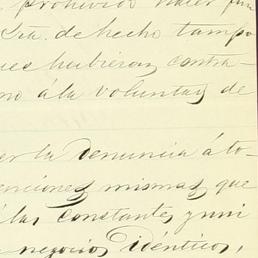 prohivido hacer
Lra. de hecho tampo
ues hubieran contra-
no á la voluntad de
er la denuncia á to-
enciones mismas que
á las Constantes y uni
negocios idénticos,